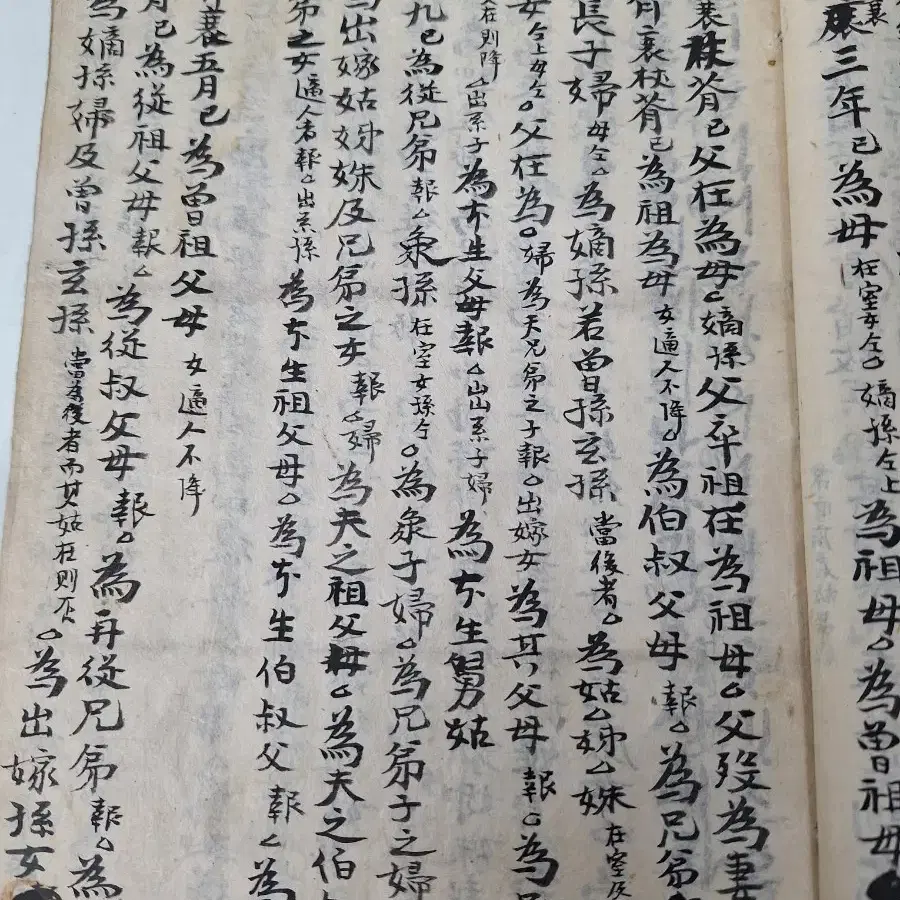 三年 已為母 在室女仝。嫡孫仝上 為祖母。為曾祖母
衰杖朞 已父在為母。嫡孫父卒祖在為祖母。父歿為妻
衰杖朞 已為祖為母 女適人不降。為伯叔父母 報。為兄弟
長子婦 母仝。為嫡孫若曾孫玄孫 當後者。為姑姊妹 在室及
女仝上母仝。父在為。婦為夫兄弟之子報。出嫁女為其父母 報。為
在則降。出系子為本生父母報。出系子婦 為本生舅姑
九 已為從兄弟 報。衆孫 在室女孫仝。為衆子婦。為兄弟子之婦
為出嫁姑姊妹及兄弟之女 報。婦為夫之祖父母。為夫之伯
弟之女適人者報。出系孫 為本生祖父母。為本生伯叔父 報。為
衰五月 已為曾祖父母 女適人不降
月 已為從祖父母報。為從叔父母 報。為再從兄弟 報。為
為嫡孫婦及曾孫玄孫 當為後者而其姑在則否。為出嫁孫女